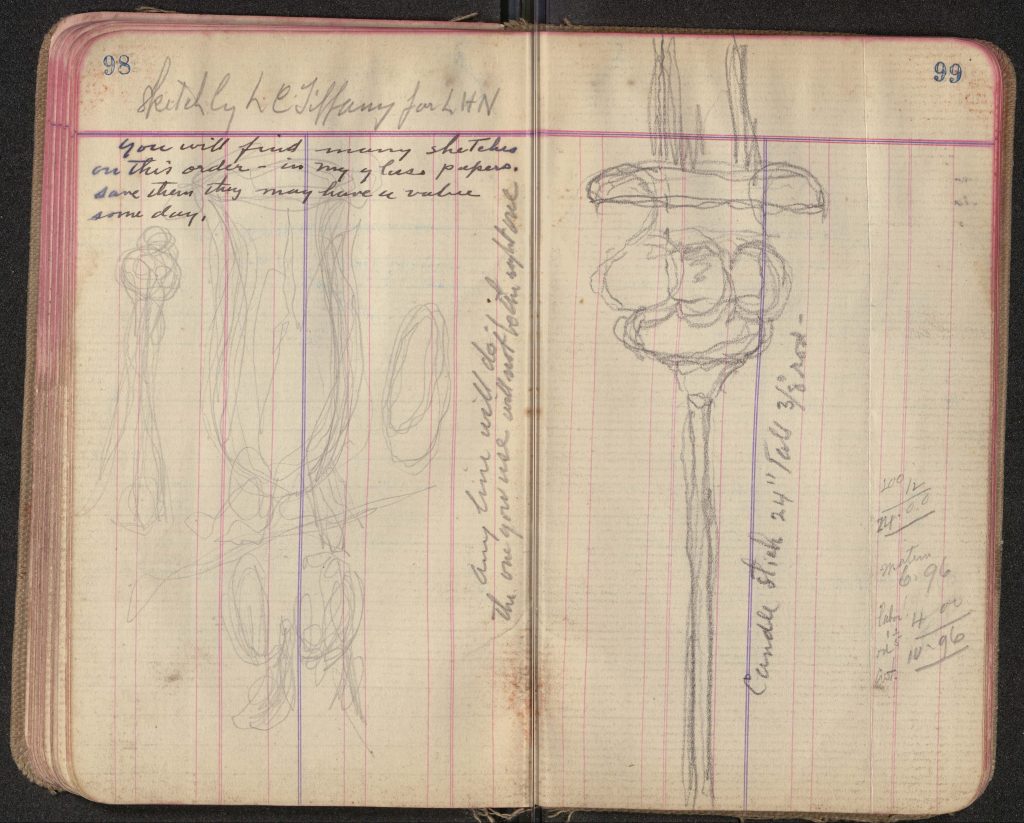 98
Sketch by L. C. Tiffany for LHN
You will find many sketches
on this order - in my glass papers.
save them they may have a value
some day.
any line will do if
the one you use will not the right one
99
Candle stick 24" Tall 3/8" rod -
200/12
24.00
6.96
labor
4 00
10.96